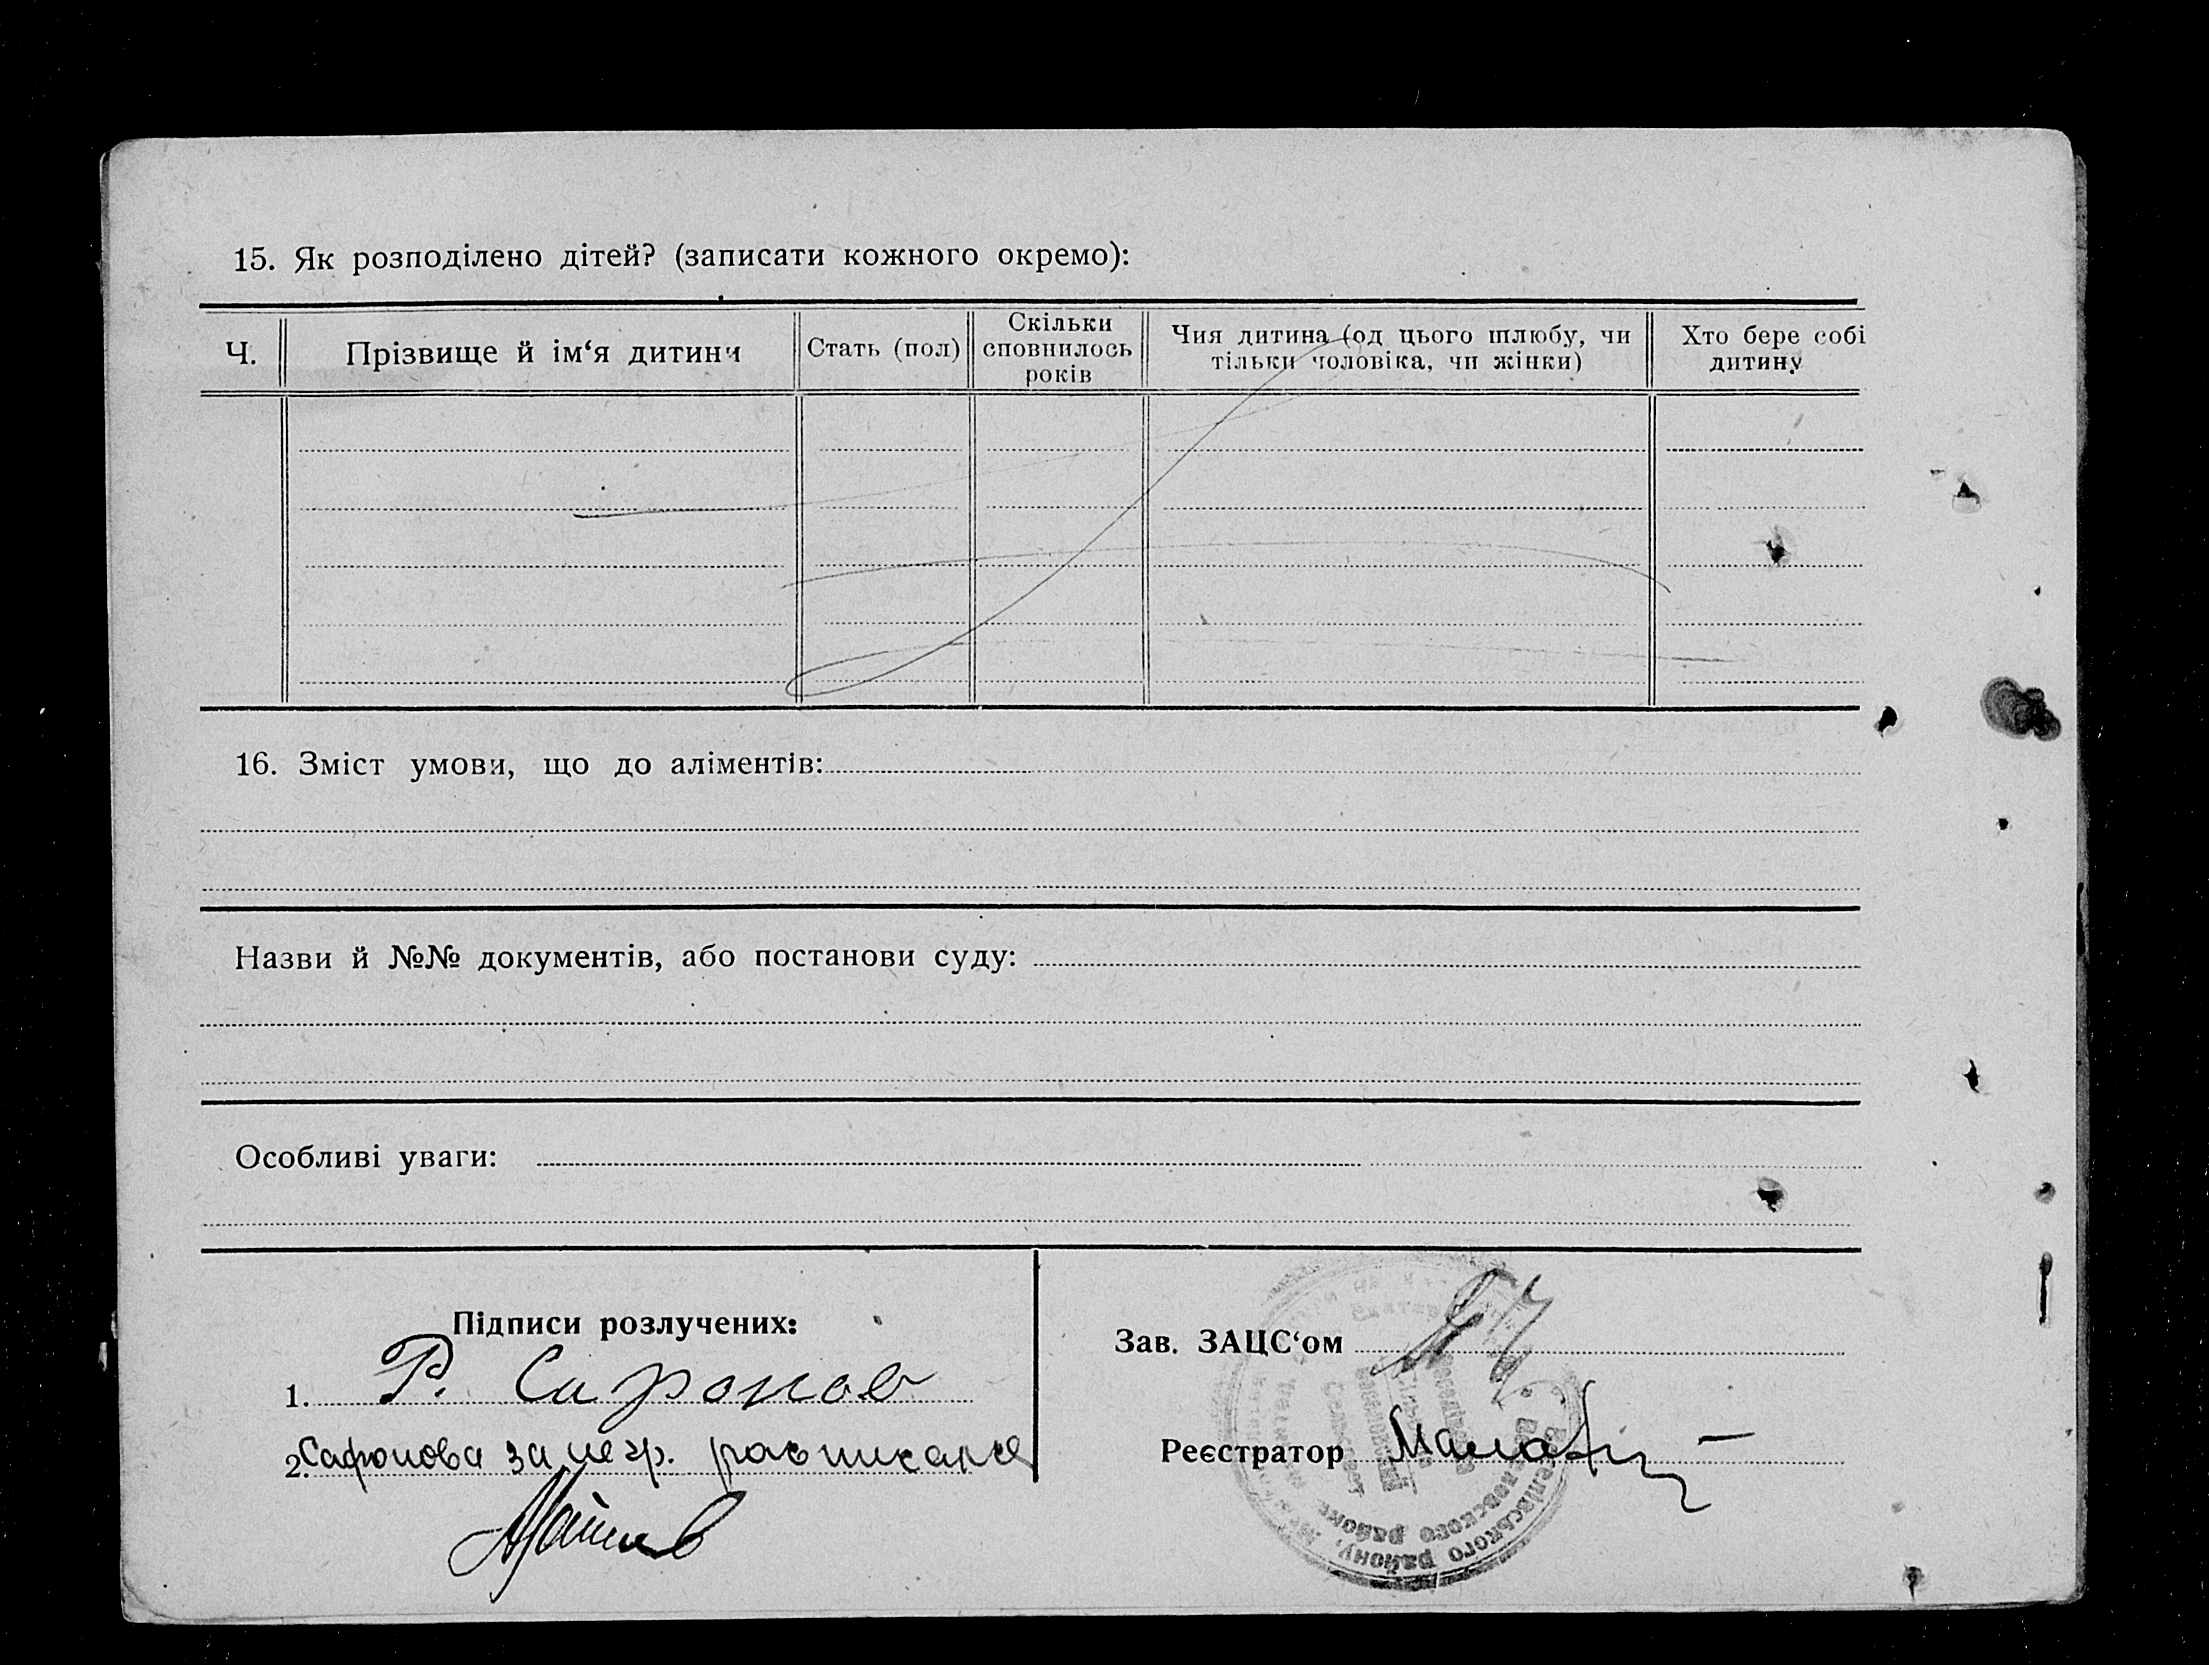 15. Як розподілено дітей? (записати кожного окремо):
Ч.
Прізвище й ім‘я дитини
Стать (пол)
Скільки
сповнилось
років
Чия дитина (од цього шлюбу, чи
тільки чоловіка, чи жінки)
Хто бере собі
дитину
16. Зміст умови, що до аліментів:
Назви й №№ документів, або постанови суду:
Особливі уваги:
Підписи розлучених:
1. Р. Сафонов
2. Сафонова за негр.
Зав. ЗАЦС‘ом
Реєстратор
району,
районе